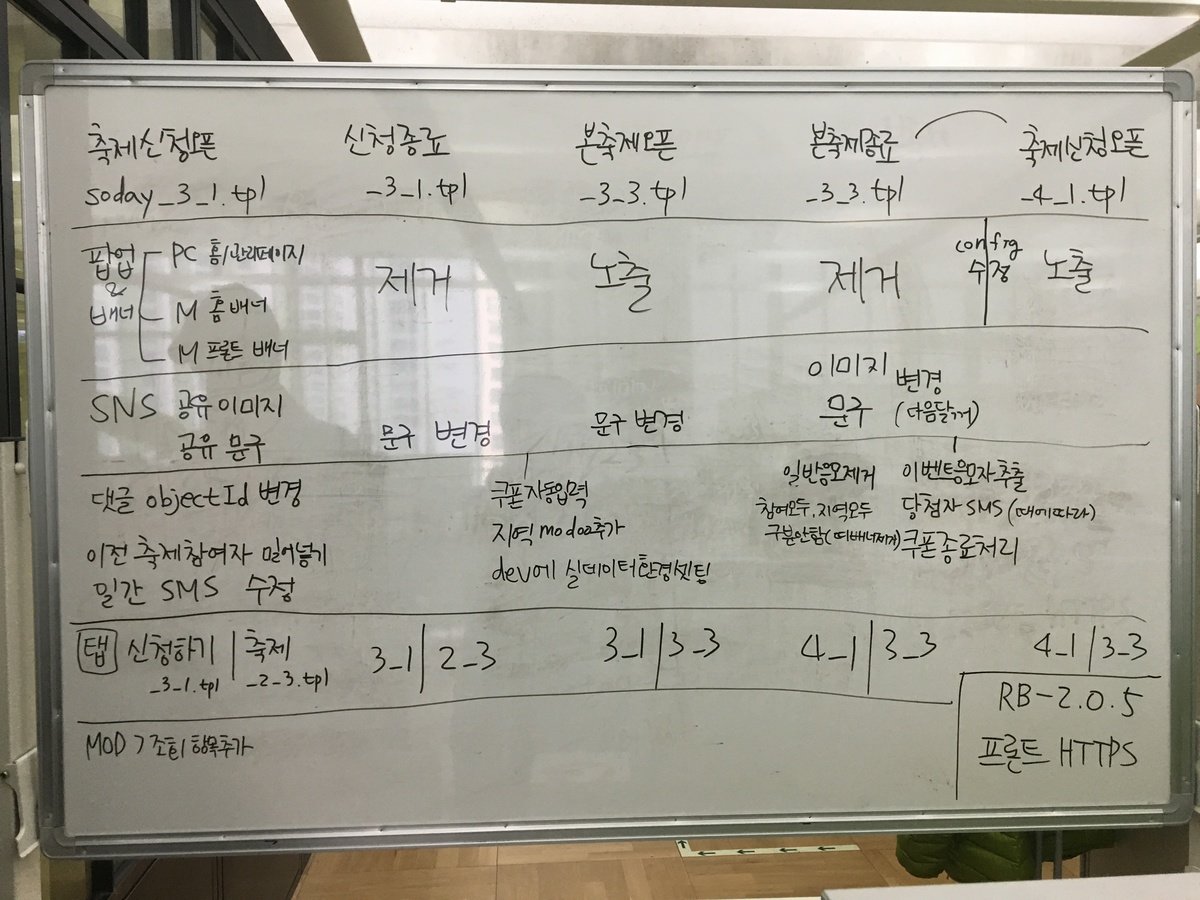 축제신청오픈 신청종료 본축제오픈 본축제종료 축제신청오픈
soday_3_1.tpl _3_1.tpl _3_3.tpl _3_3.tpl _4_1.tpl
팝업 & 배너
PC 홈/관리페이지
M 홈 배너
M 프론트 배너
제거 노출 제거 config 수정 노출
SNS 공유 이미지
공유 문구
문구 변경 문구 변경
이미지 문구 변경 (다음달꺼)
댓글 objectId 변경
이전 축제참여자 밀어넣기
일간 SMS 수정
쿠폰자동입력
지역 mod02추가
dev에 실데이터환경셋팅
일반응모제거
참여모두, 지역모두
구분안함(띠배너제거)
이벤트응모자추출
당첨자 SMS (때에따라)
쿠폰종료처리
탭 신청하기 | 축제
_3_1.tpl _2_3.tpl
3_1 | 2_3 3_1 | 3_3 4_1 | 3_3 4_1 | 3_3
MOD 7 조회 항목추가
RB-2.0.5
프론트 HTTPS